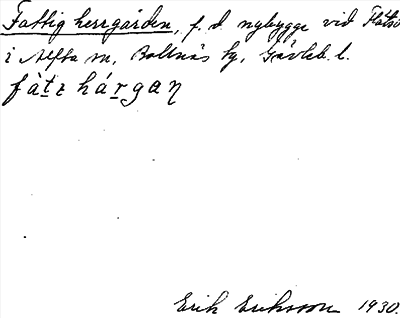 Fattig herrgården, f. d. nybygge vid
i Alfta sn, Bollnäs tg, Gävleb. l.
fàtɩ hárgaṇ
Erik Eriksson 1930.